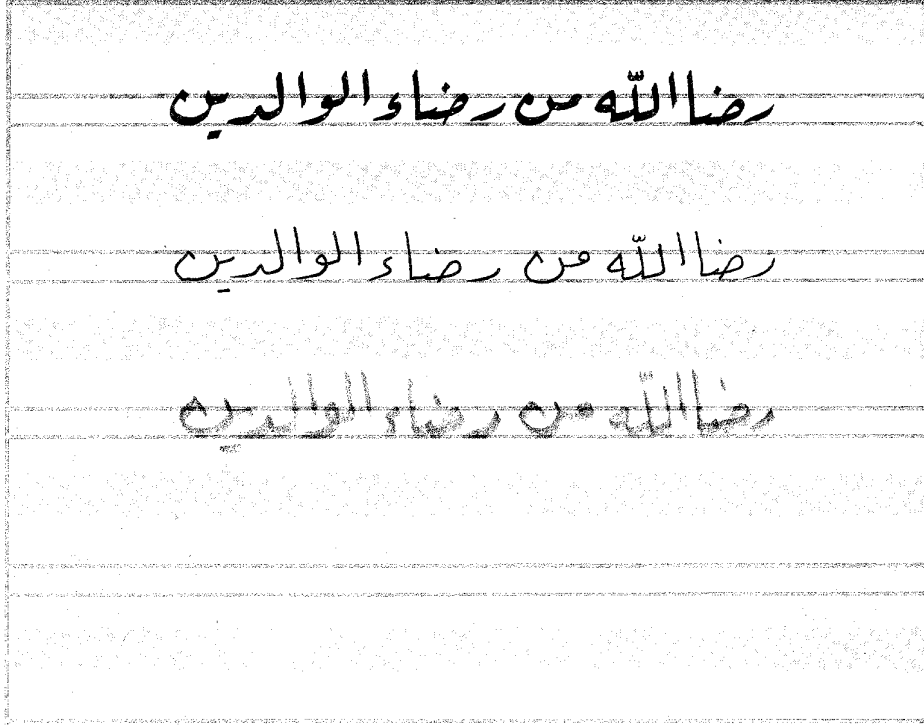 رضا اللّه من رضاء الوالدين
رضا اللّه من رضاء الوالدين
رضا اللّه من رضاء الوالدين